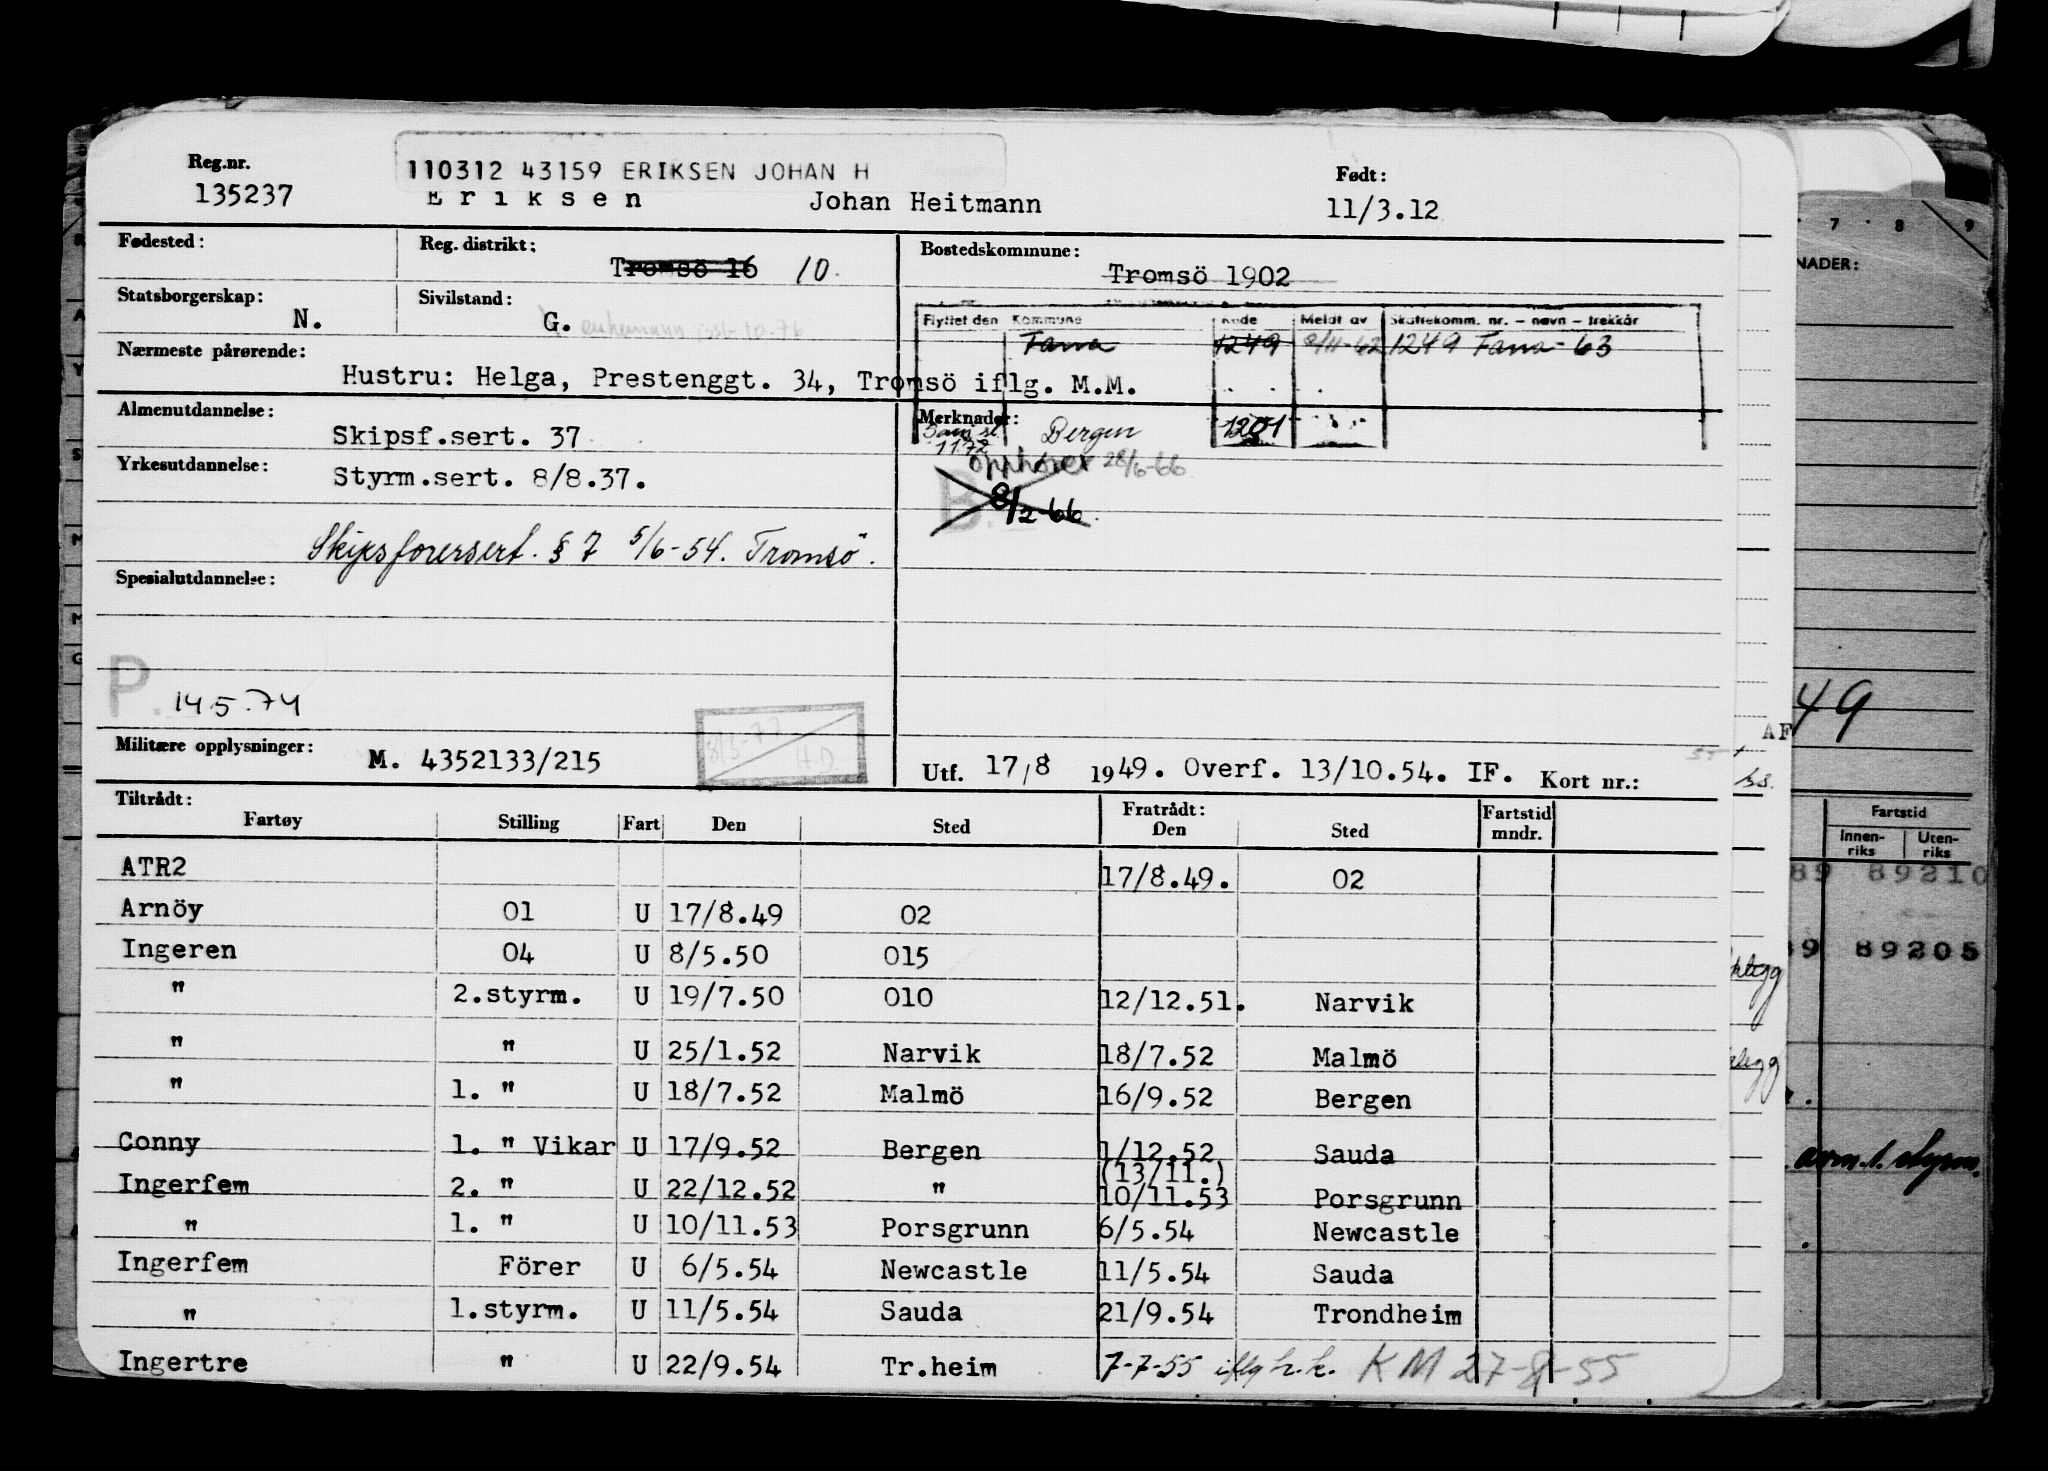 Reg.nr.
135237
110312 43159 ERIKSEN JOHAN H
Eriksen Johan Heitmann
Født:
11/3.12
Fødested:
Reg. distrikt:
Tromsö 16 10.
Bostedskommune:
Tromsö 1902
Statsborgerskap:
N.
Sivilstand:
G. enkemann
Flyttet den Kommune Kode Meldt av Skattekomm. nr. – navn – trekkår
Fana 1249 9/11-62 1249 Fana - 63
Nærmeste pårørende:
Hustru: Helga, Prestenggt. 34, Tromsö iflg. M.M.
Almenutdannelse:
Skipsf.sert. 37
Merknader:
1172
Bergen 1201
opphører 28/6-66
B.
8/2-66.
Yrkesutdannelse:
Styrm.sert. 8/8.37.
Skipsforersert. § 7 5/6-54. Tromsö.
Spesialutdannelse:
P.
14.5.74
8/3-77
H.D.
Militære opplysninger:
M. 4352133/215
Utf. 17/8 1949. Overf. 13/10.54. IF. Kort nr.:
Tiltrådt:
Fartøy Stilling Fart Den Sted
Fratrådt:
Den Sted
Fartstid
mndr.
ATR2 17/8.49. 02
Arnöy 01 U 17/8.49 02
Ingeren 04 U 8/5.50 015
" 2.styrm. U 19/7.50 010 12/12.51. Narvik
" " U 25/1.52 Narvik 18/7.52 Malmö
" 1. " U 18/7.52 Malmö 16/9.52 Bergen
Conny 1. " Vikar U 17/9.52 Bergen 1/12.52 Sauda
(13/11.)
Ingerfem 2. " U 22/12.52 " 10/11.53 Porsgrunn
" 1. " U 10/11.53 Porsgrunn 6/5.54 Newcastle
Ingerfem Förer U 6/5.54 Newcastle 11/5.54 Sauda
" 1.styrm. U 11/5.54 Sauda 21/9.54 Trondheim
Ingertre " U 22/9.54 Tr.heim 7-7-55 iflg h.k. KM 27-8-55
7 8 9
NADER:
49
AF
Fartstid
Innen-
riks
Uten-
riks
89 89210
89205